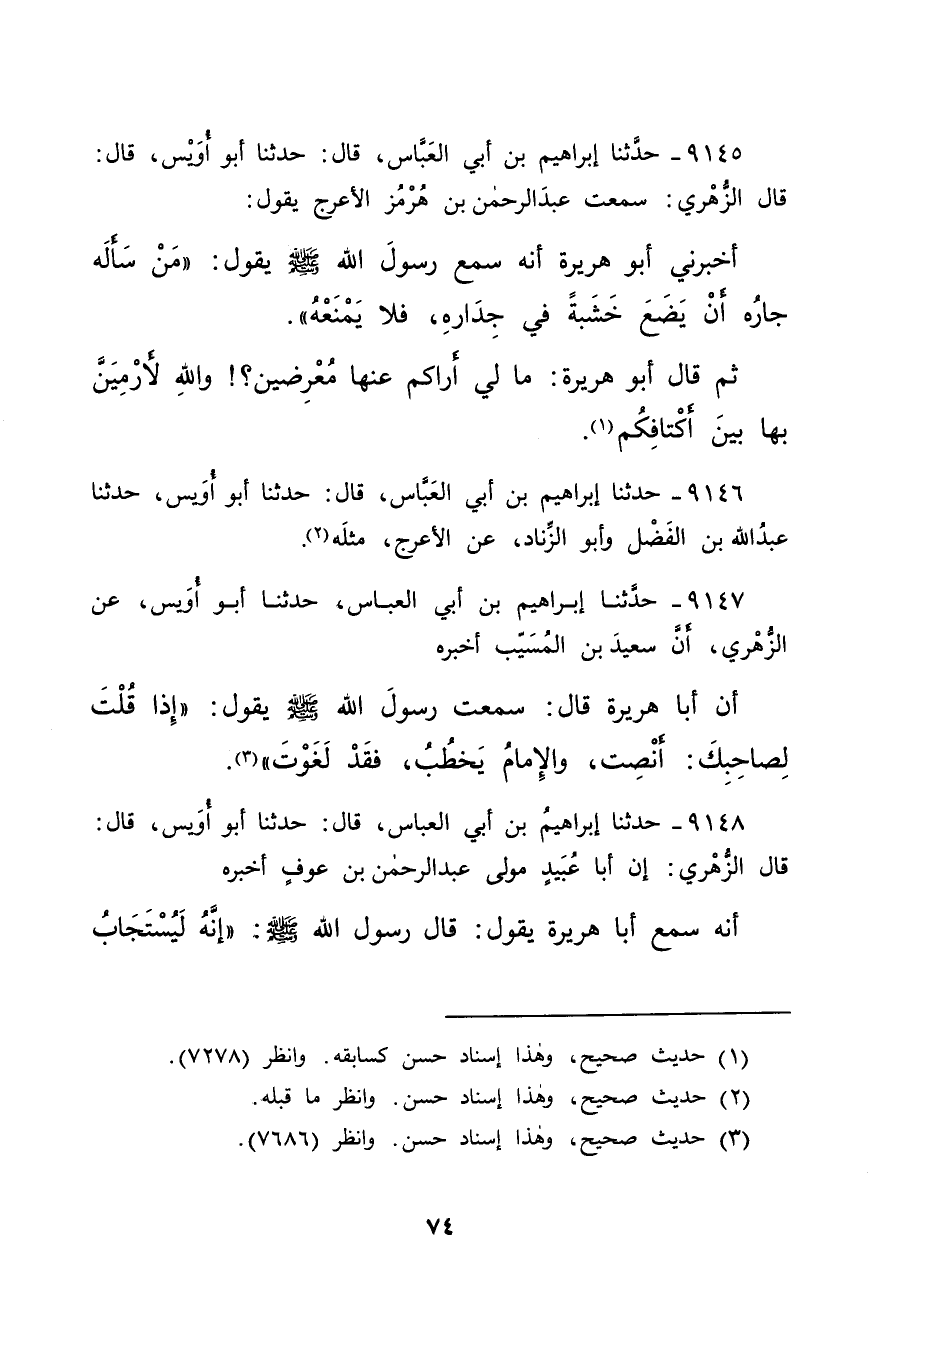 ٩١٤٥ـ حدَّثنا إبراهيم بن أبي العَبَّاس، قال: حدثنا أبو أُوَيْس، قال:
قال الزُّهْري: سمعت عبدَالرحمٰن بن هُرْمُز الأعرج يقول:
أخبرني أبو هريرة أنه سمع رسولَ الله ﷺ يقول: «مَنْ سَأَلَه
جارُه أَنْ يَضَعَ خَشَبةً في جِدَارِهِ، فلا يَمْنَعْهُ».
ثم قال أبو هريرة: ما لي أَراكم عنها مُعْرِضين؟! واللهِ لَأَرْمِيَنَّ
بها بينَ أَكْتافِكُم(١).
٩١٤٦ـ حدثنا إبراهيم بن أبي العَبَّاس، قال: حدثنا أبو أُوَيس، حدثنا
عبدُالله بن الفَضْل وأبو الزِّناد، عن الأعرج، مثلَه(٢).
٩١٤٧ـ حدَّثنا إبراهيم بن أبي العباس، حدثنا أبو أُوَيس، عن
الزُّهْري، أَنَّ سعيدَ بن المُسَيّب أخبره
أن أبا هريرة قال: سمعت رسولَ الله ﷺ يقول: «إِذا قُلْتَ
لِصاحِبِكَ: أَنْصِت، والإِمامُ يَخطُبُ، فقَدْ لَغَوْتَ»(٣).
٩١٤٨ـ حدثنا إبراهيمُ بن أبي العباس، قال: حدثنا أبو أُوَيس، قال:
قال الزُّهْري: إن أبا عُبَيدٍ مولى عبدالرحمٰن بن عوفٍ أخبره
أنه سمع أبا هريرة يقول: قال رسول الله ﷺ: «إِنَّهُ لَيُسْتَجَابُ
(١) حديث صحيح، وهٰذا إسناد حسن كسابقه. وانظر (٧٢٧٨).
(٢) حديث صحيح، وهٰذا إسناد حسن. وانظر ما قبله.
(٣) حديث صحيح، وهٰذا إسناد حسن. وانظر (٧٦٨٦).
٧٤